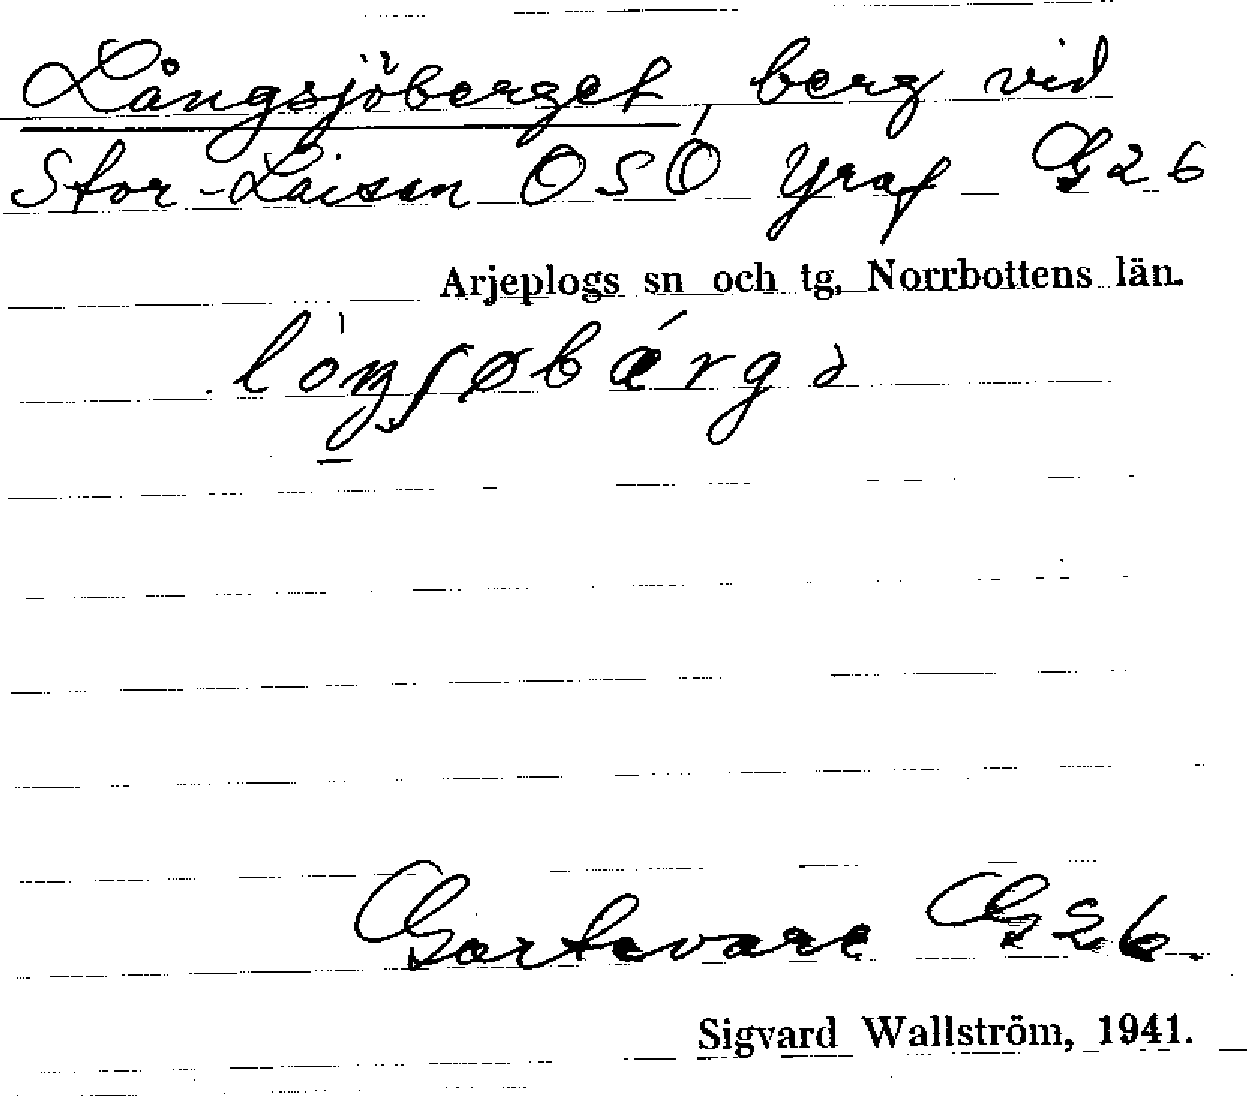 Långsjöberget, berg vid
Stor-Laisan OSO Yraf G26
Arjeplogs sn och tg, Norrbottens län.
lòŋʃøbǽrgə
Gartavare G26.
Sigvard Wallström, 1941.